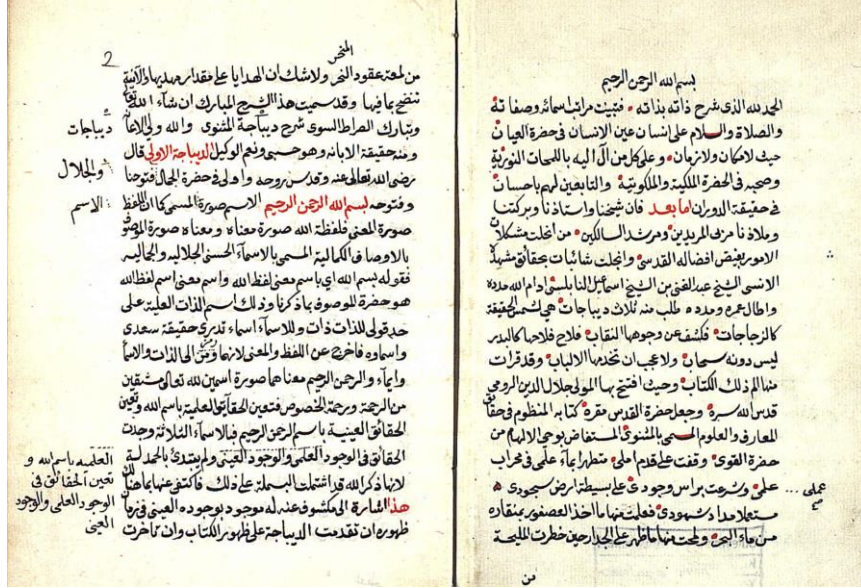 بسم الله الرحمن الرحيم
الحمد لله الذى شرح ذاته بذاته فتبينت مراتب اسمائه وصفاته
والصلاة والسلام على انسان عين الانسان فى حضرة العيان
حيث لامكان ولازمان وعلى كل من آل اليه باللمحات النورية
وصحبه فى الحضرة الملكية والملكوتية والتابعين لهم باحسان
فى حقيقة الدوران اما بعد فان شيخنا واستاذنا وبركتنا
وملاذنا مربى المريدين ومرشد السالكين من انحلت مشكلات
الامور بفيض افضاله القدسى وانجلت شائبات بحقائق مشهده
الانسى الشيخ عبد الغنى بن الشيخ اسماعيل النابلسى ادام الله مدده
واطال عمره ومدده طلب منه ثلاث ديباجات هى لشمس الحقيقة
كالزجاجات فكشف عن وجوهها النقاب فلاح فلاحها كالبدر
ليس دونه سحاب ولاعجب ان تخدمها الالباب وقد قرات
منها لم ذلك الكتاب وحيث افتتح بها المولى جلال الدين الرومي
قدس الله سره وجعل حضرة القدس مقره كتابه المنظوم فى حقائق
المعارف والعلوم المسمى بالمثنوى المستفاض بوحى الالهام من
حضرة القوى وقفت على قدم املى متطهرا بماء علمى فى محراب
علمى وشرعت براس وجودى على بسيطة ارض سجودى
مستعملا مداد شهودى فعلمت منها ما اخذ العصفور بمنقاره
من ماء البحر ولمحت منها ماظهر على الجدار حين خطرت المليحة
عملى
صح
من
2
المنحر
من لمعة عقود النحر ولاشك ان الهدايا على مقدار مهديها والآنية
تنضح بما فيها وقد سميت هذا الشرح المبارك ان شاء الله تعالى
وتبارك الصراط السوى شرح ديباجة المثنوى والله ولى الاعانة
ومنه حقيقة الابانه وهو حسبى ونعم الوكيل الديباجة الاولى قال
رضى الله تعالى عنه وقدس روحه وادلى فى حضرة الجمال فتوحنا
وفتوحه بسم الله الرحمن الرحيم الاسم صورة المسمى كما ان اللفظ
صورة المعنى فلفظة الله صورة معناه ومعناه صورة الموصوف
بالاوصاف الكمالية المسمى بالاسماء الحسنى الجلاليه والجماليه
فقوله بسم الله اى باسم معنى لفظ الله واسم معنى اسم لفظ الله
هو حضرة الموصوف بما ذكرنا وذلك اسم الذات العلية على
حد قولى للذات ذات وللاسماء اسماء تدرى حقيقة سعدى
واسماوه فاخرج عن اللفظ والمعنى لانها رمز الى الذات والاسما
وايماء والرحمن الرحيم معناهما صورة اسمين لله تعالى مشتقين
من الرحمة ورحمة الخصوص فتعين الحقائق العلمية باسم الله وتعين
الحقائق العينية باسم الرحمن الرحيم فبالاسماء الثلاثة وجدت
الحقائق فى الوجود العلمى والوجود العينى ولم يبتدئ بالحمدلة
لانها ذكر الله قد اشتملت البسملة على ذلك فاكتفى عنها بما هنالك
هذا اشارة الى مكشوف عنه له موجود لوجوده العينى فى زمان
ظهوره ان تقدمت الديباجة على ظهور الكتاب وان تأخرت
ديباجات
والجلال
الاسم
العلميه باسم الله و
تعين الحقائق فى
الوجود العلمى والوجود
العينى